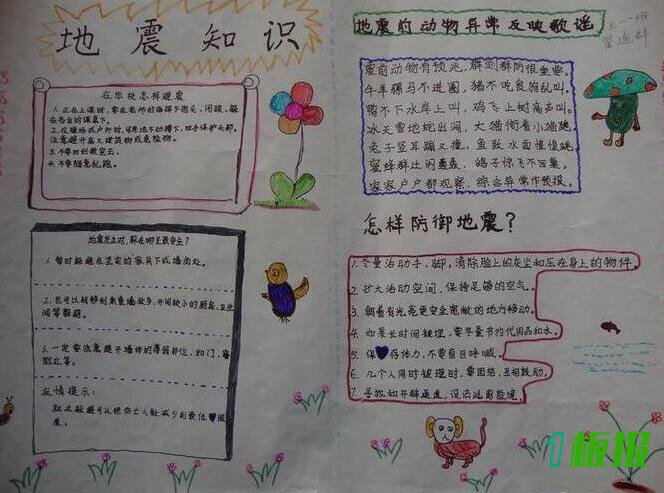 地震知识
在学校怎样避震
1.正在上课时，要在老师的指挥下抱头、闭眼、躲
在各自的课桌下。
2.在操场或户外时，可原地不动蹲下，双手保护头部。
注意避开高大建筑物或危险物。
3.不要回到教室去。
4.不要随意乱跑。
地震发生时，躲在哪里最安全？
1.暂时躲避在坚实的家具下或墙角处。
2.也可以转移到承重墙较多、开间较小的厨房、卫生
间等躲避。
3.一定要注意避开墙体的薄弱部位，如门、窗
附近等。
友情提示：
就近躲避可以使伤亡人数减少到最低
度。
地震前动物异常反映歌谣
震前动物有预兆，群测群防很重要。
牛羊骡马不进圈，猪不吃食狗乱叫。
鸭不下水岸上叫，鸡飞上树高声叫。
冰天雪地蛇出洞，大猫衔着小猫跑。
兔子竖耳蹦又撞，鱼跃水面惶惶跳。
蜜蜂群迁闹轰轰，鸽子惊飞不回巢。
家家户户都观察，综合异常作预报。
怎样防御地震？
1.尽量活动手、脚，清除脸上的灰尘和压在身上的物件。
2.扩大活动空间，保持足够的空气。
3.朝着有光亮更安全宽敞的地方移动。
4.如果长时间被埋，要尽量节约代用品和水。
5.保存体力，不要盲目呼喊。
6.几个人同时被埋时，要团结，互相鼓励。
7.寻找和开辟通道，设法逃离险境。
1板报